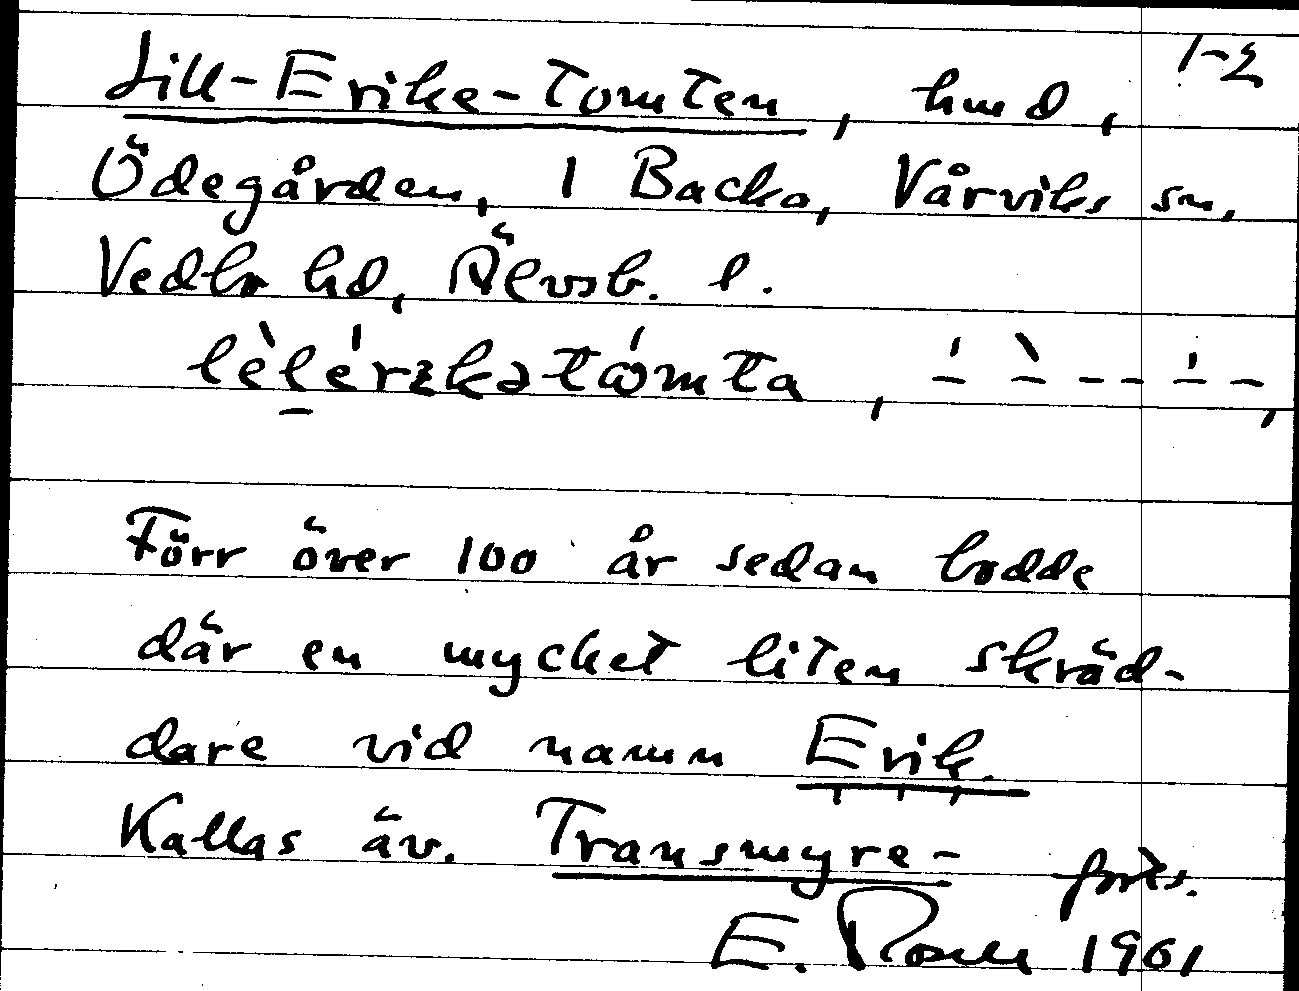 1-2
Lill-Eriks-Tomten, hmd,
Ödegården, 1 Backa, Vårviks sn,
Vedbo hd, Älvsb. l.
Förr över 100 år sedan bodde
där en mycket liten skräd-
dare vid namn Erik.
Kallas äv. Transmyre- forts.
E. 1961